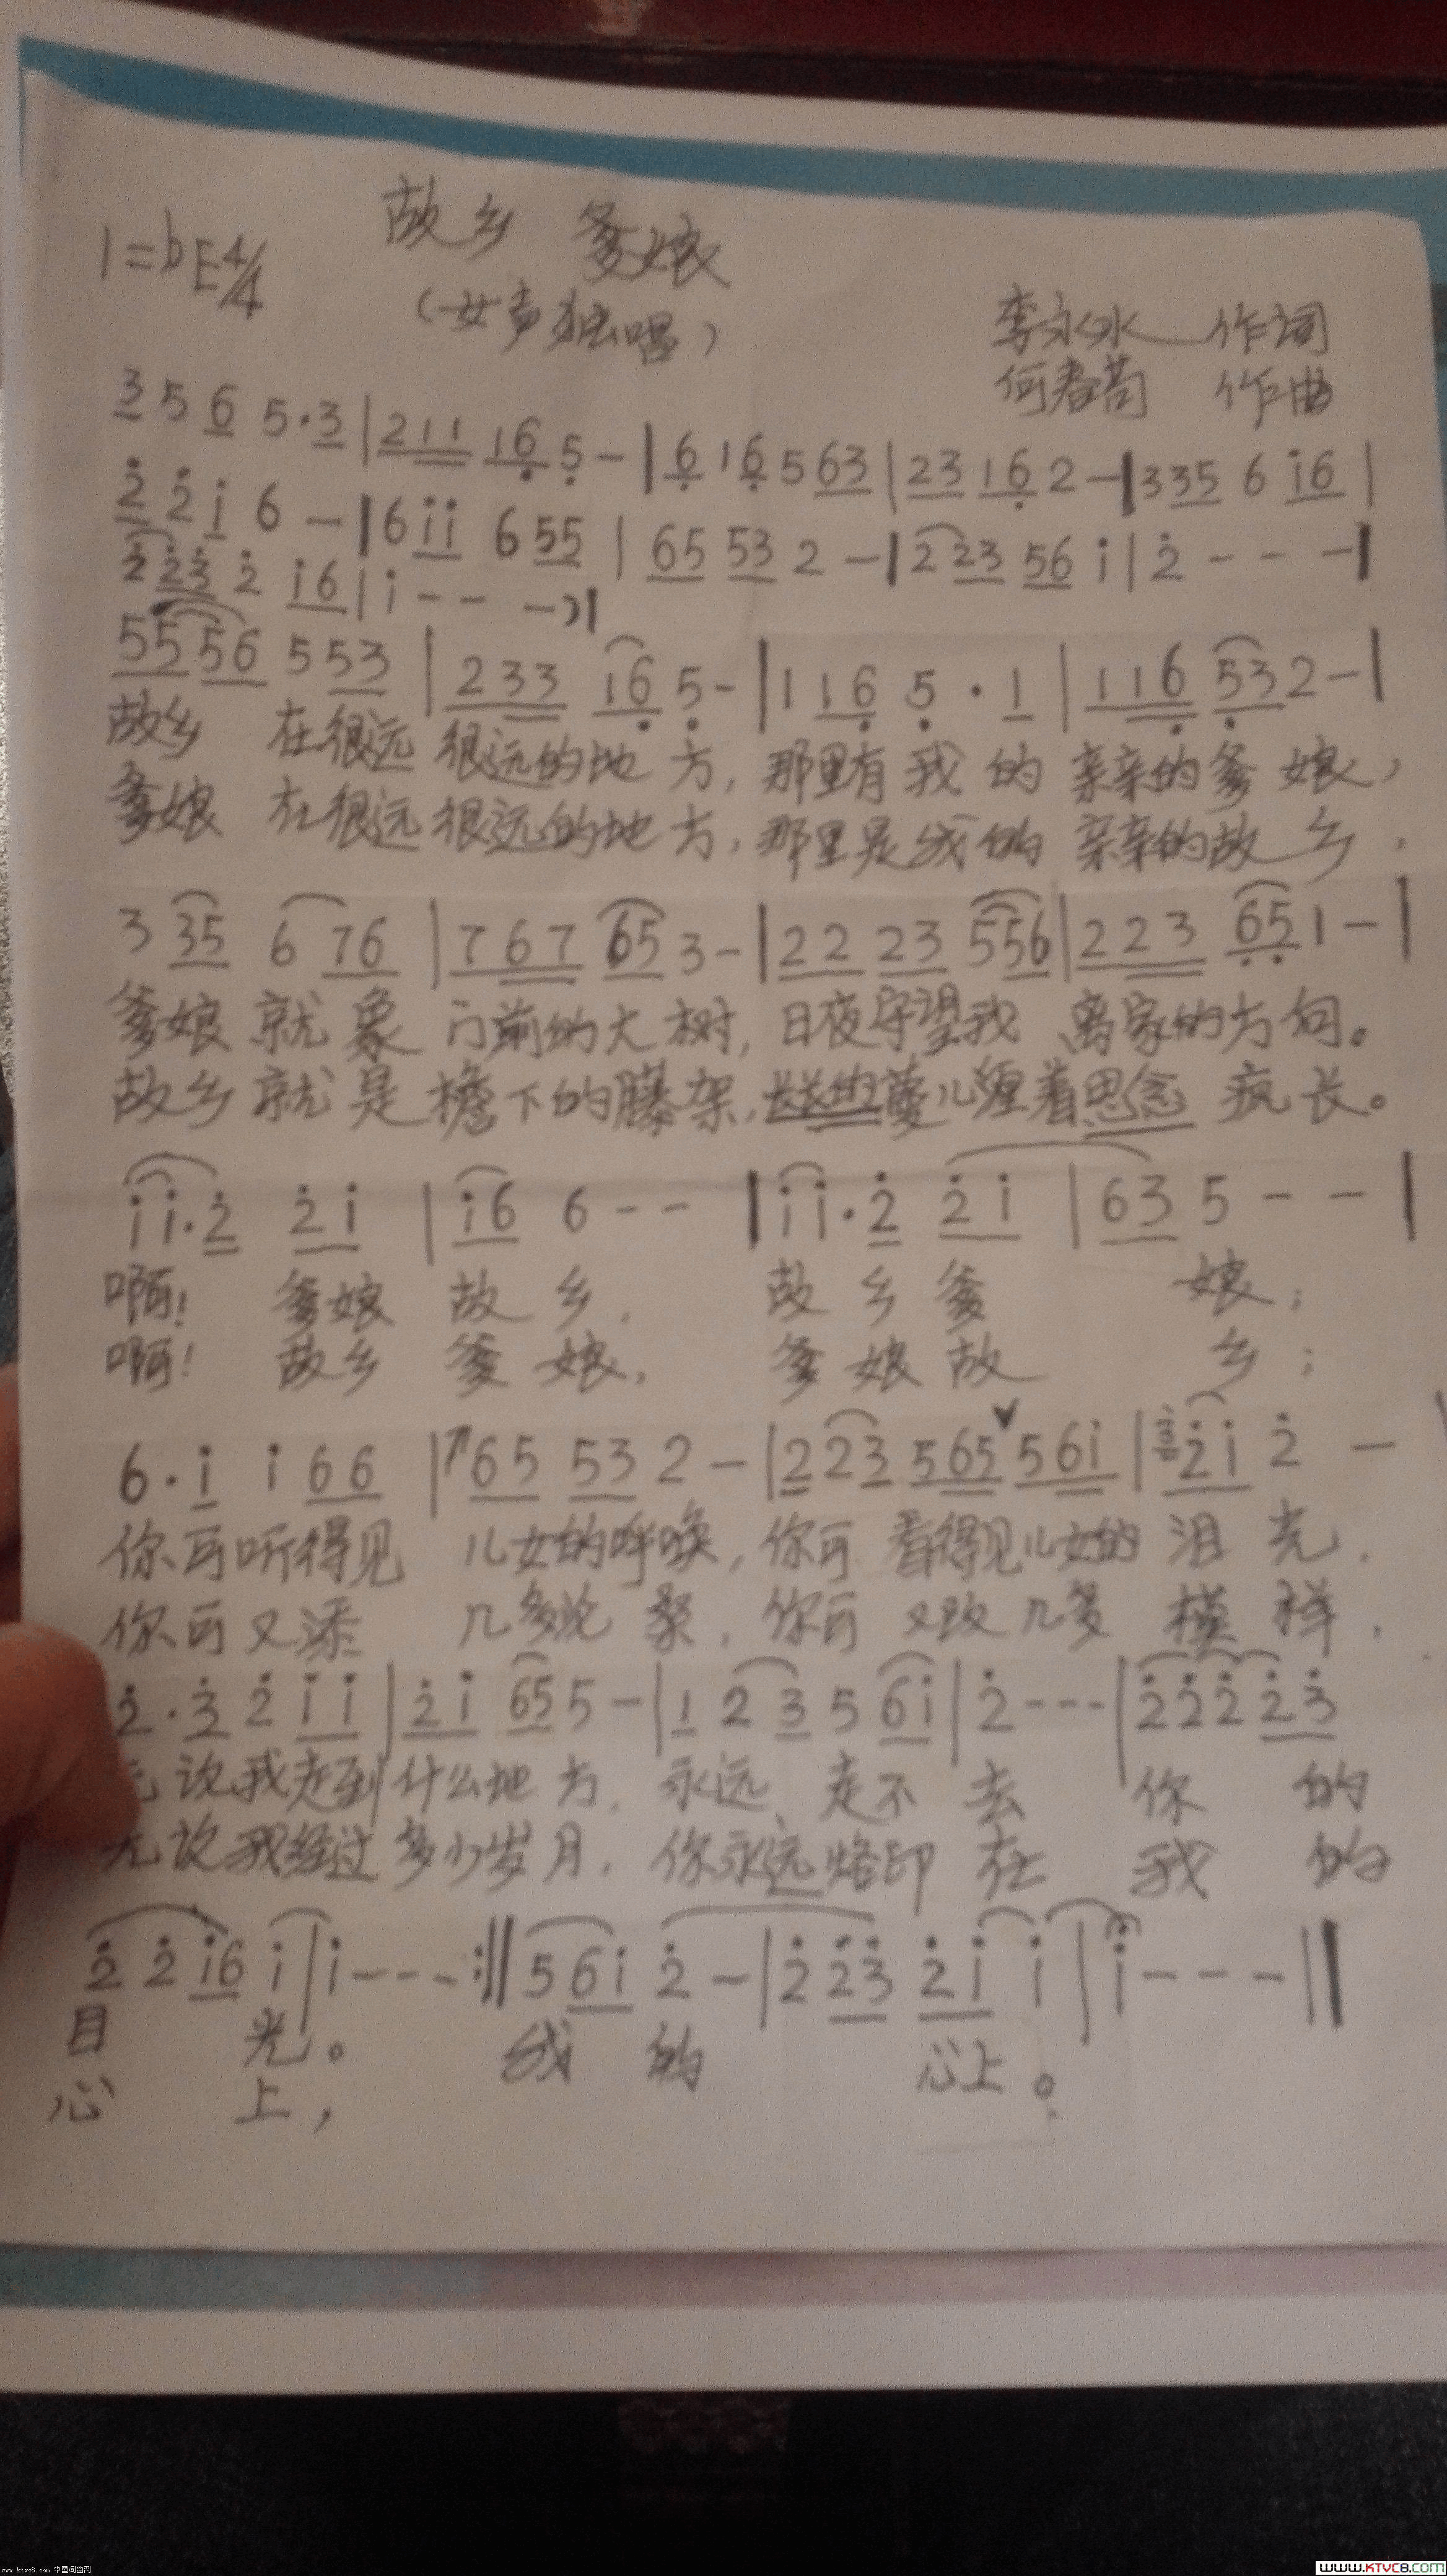 故乡 爹娘
1=bE4/4
(女声独唱)
李永冰 作词
何春 作曲
3 5 6 5·3|211 16 5 -|6 16 5 63|23 16 2 -|335 6 i6|
2̇ 2̇ i 6 -|6 ii 6 55|65 53 2 -|2 23 56 i|2̇ - - -|
2̇ 2̇3̇ 2̇ i6|i - - -)|
55 56 5 53|233 16 5 -|1 16 5·1|116 53 2 -|
故乡 在很远 很远的地方,那里有我的亲亲的爹娘,
爹娘 在很远 很远的地方,那里是我的亲亲的故乡,
3 35 6 76|767 65 3 -|22 23 5 56|223 65 1 -|
爹娘就象 门前的大树,日夜守望我 离家的方向。
故乡就是 檐下的藤架,长长的蔓儿缠着思念 疯长。
i i·2̇ 2̇i|i6 6 - -|i i·2̇ 2̇ i|63 5 - -|
啊! 爹娘 故乡, 故乡爹 娘;
啊! 故乡 爹娘, 爹娘故 乡;
6·i i 66|65 53 2 -|2 23 565 56i|3̇ 2̇i 2̇ -
你可听得见 儿女的呼唤,你可 看得见儿女的 泪光,
你可又添 几多沧桑,你可 又改几多 模样,
2̇·3̇ 2̇ ii|2̇i 65 5 -|1 2 3 5 6i|2̇ - - -|2̇ 2̇ 2̇ 2̇3̇
说我走到什么地方,永远 走不 去 你 的
无论我经过多少岁月,你永远烙印 在 我 的
2̇ 2̇ i6 i|i - - -:‖5 6i 2̇ -|2̇ 2̇3̇ 2̇i i|i - - -‖
目 光。 我 的 心上。
心 上,
www.ktvc8.com 中国词曲网
WWW.KTVC8.COM